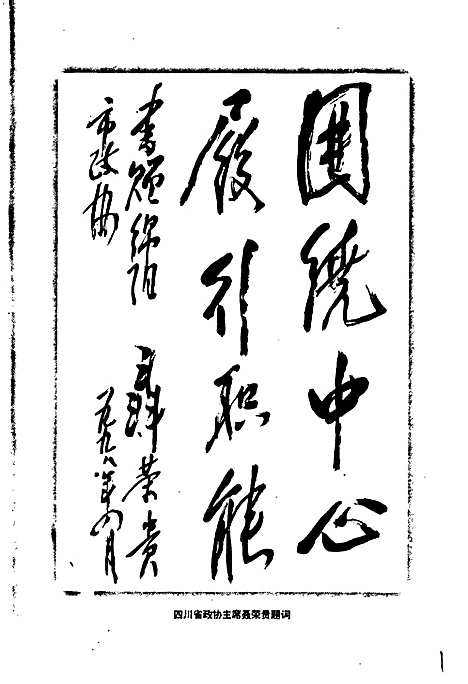 围绕中心
履行职能
书赠绵阳
市政协
聂荣贵
一九九八年八月
四川省政协主席聂荣贵题词
1